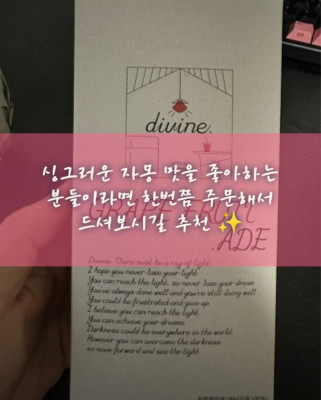 divine.
싱그러운 자몽 맛을 좋아하는
분들이라면 한번쯤 주문해서
드셔보시길 추천 ✨
GRAPEFRUIT
.ADE
Divine. There must be a ray of light.
I hope you never lose your light.
You can reach the light, so never lose your dream
You've always done well and you're still doing well
You could be frustrated and give up.
I believe you can reach the light.
You can achieve your dreams.
Darkness could be everywhere in the world.
However you can overcome the darkness.
so move forward and see the light.